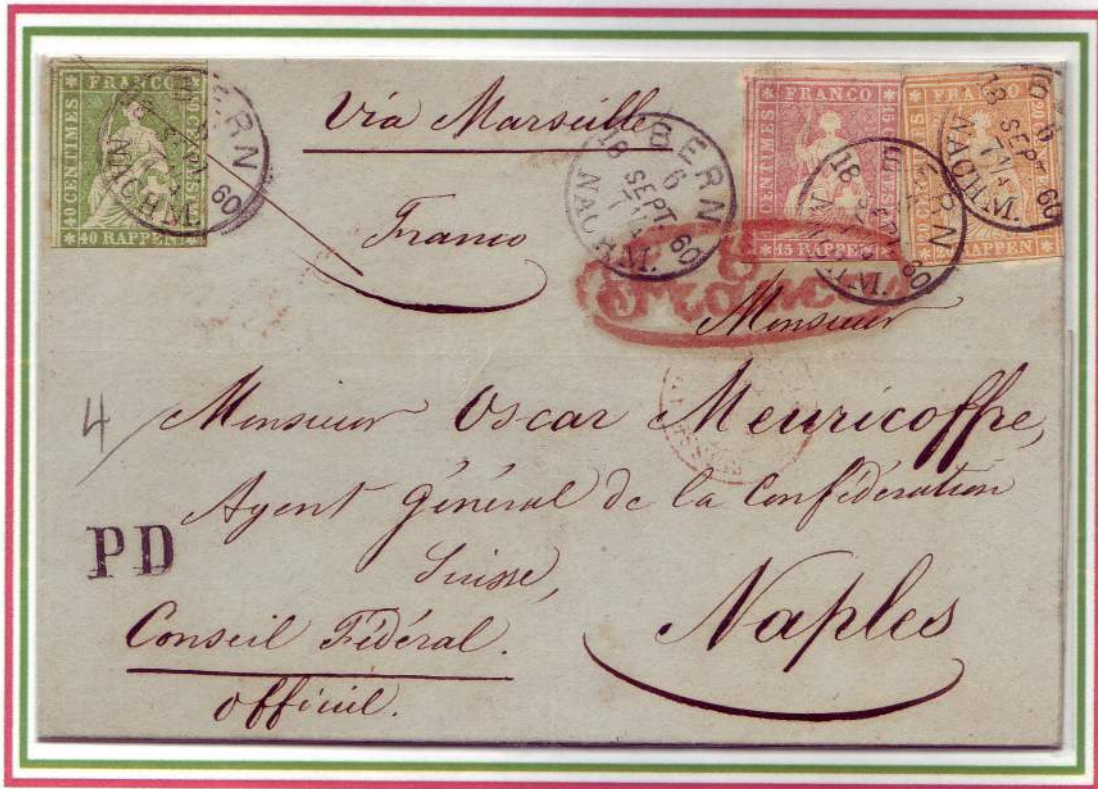 FRANCO
40 CENTIMES
40 RAPPEN
BERN
NACHM.
60
Via Marseille
Franco
BERN
6
18 SEPT. 60
NACHM.
FRANCO
15 CENTIMES
15 RAPPEN
BERN
18
60
FRANCO
20 CENTIMES
20 RAPPEN
6
18 SEPT 60
NACHM.
Franco
Monsieur
4
Monsieur Oscar Meuricoffre,
Agent Général de la Confédération
Suisse,
PD
Naples
Conseil Fédéral.
officiel.